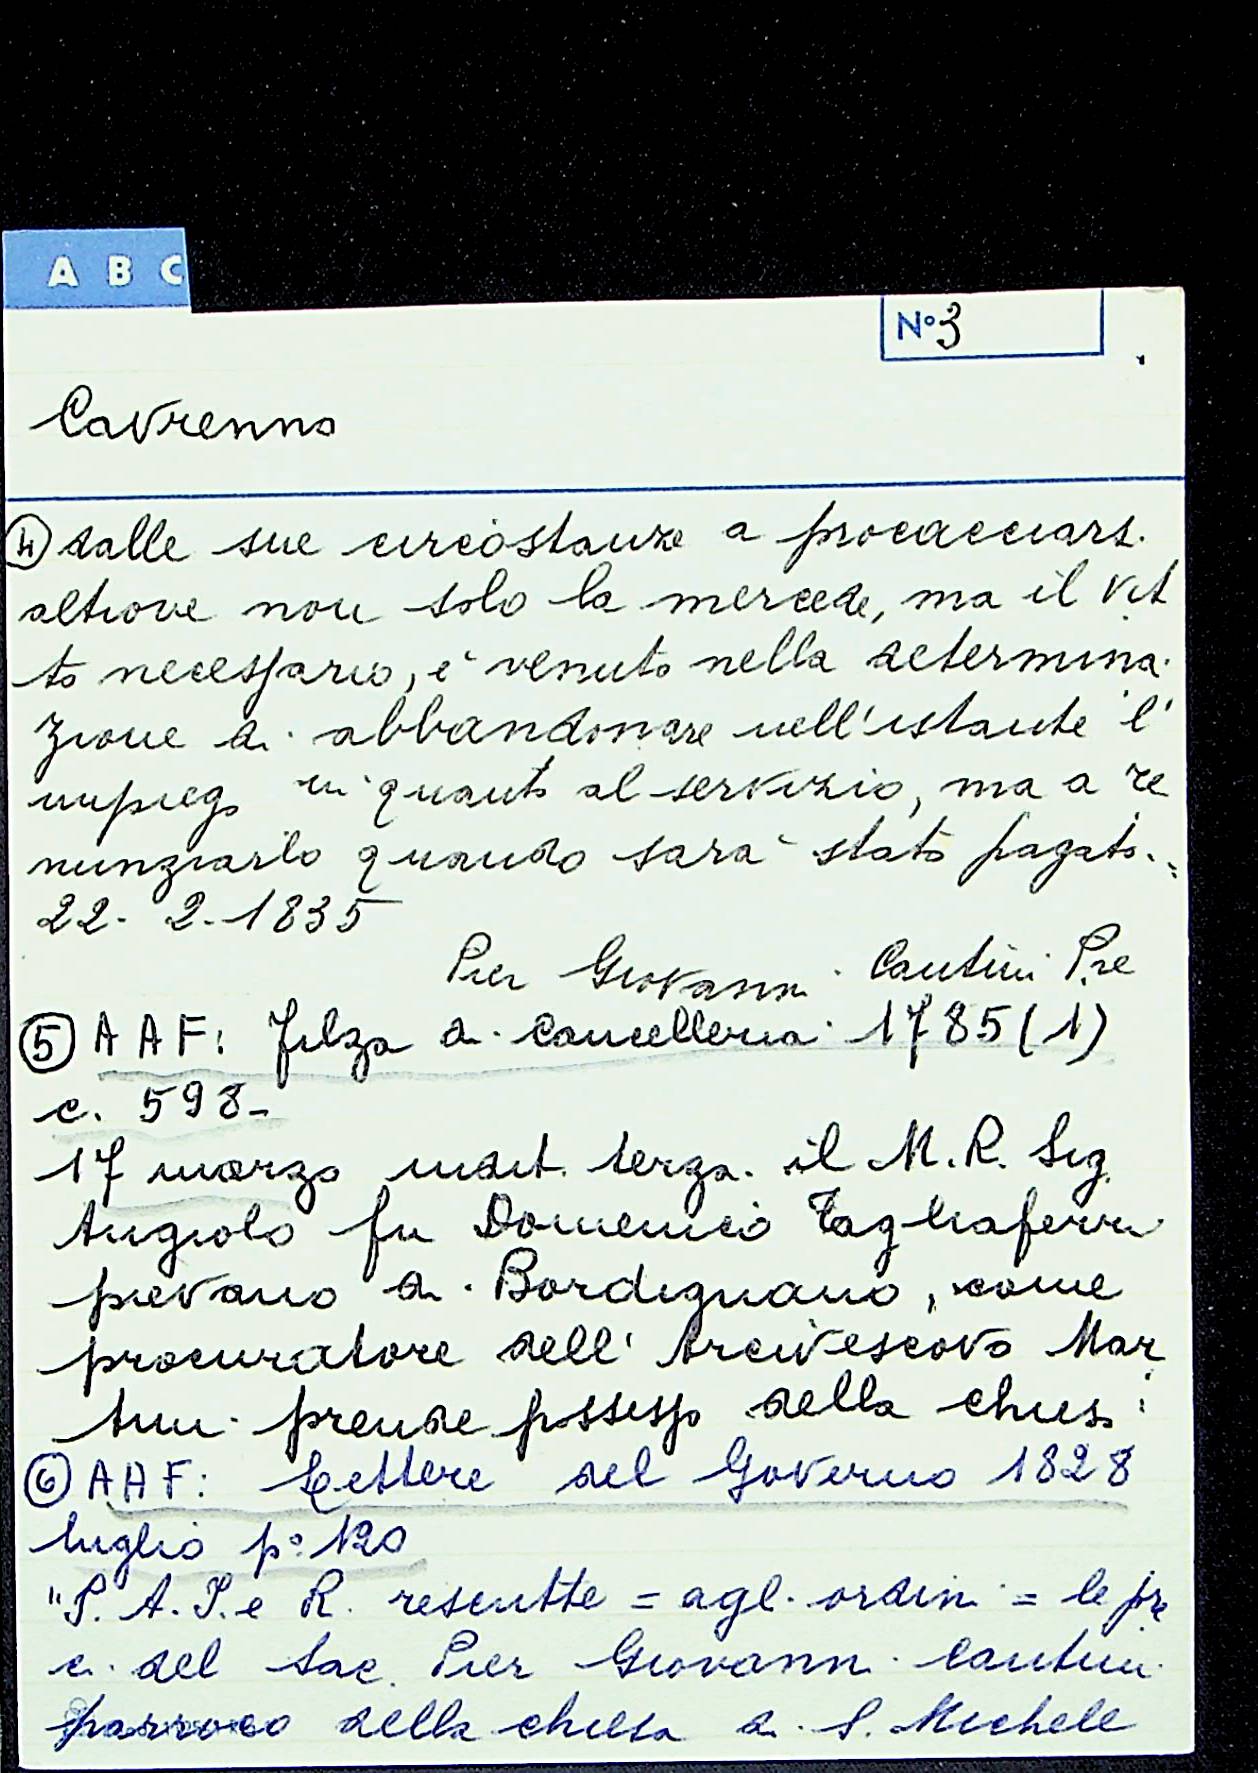 A B C
N° 3
Cavrenno
④ dalle sue circostanze a procacciarsi
altrove non solo la mercede, ma il vit
to necessario, è venuto nella determina-
zione di abbandonare nell'istante l'
impiego in quanto al servizio, ma a re
nunziarlo quando sarà stato pagato..."
22-2-1835
Pier Giovanni Cantini P.re
⑤ A A F: Filza di Cancelleria 1785 (1)
c. 598-
17 marzo indit. terza. il M. R. Sig.
Angiolo fu Domenico Tagliaferri
pievano di Bordignano, come
procuratore dell' Arcivescovo Mar
tini prende possesso della chiesa
⑥ A A F: Lettere del Governo 1828
luglio p° 120
"S. A. I. e R. rescritte = agli ordini = le pre
ci del Sac. Pier Giovanni Cantini
parroco della chiesa di S. Michele